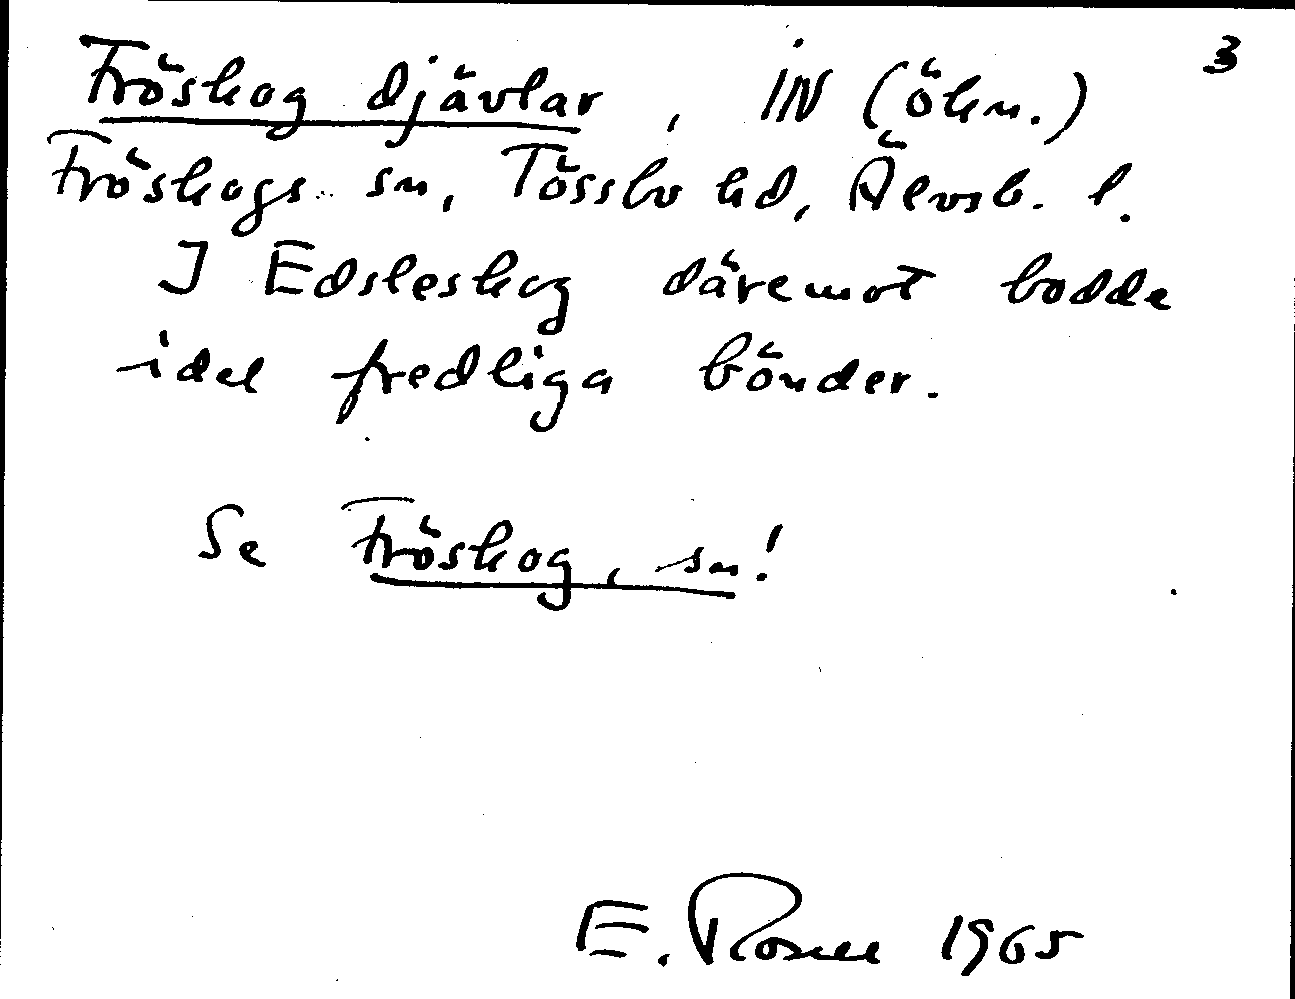 Fröskog djävlar, iN (ökn.) 3
Fröskogs sn, Tössbo hd, Älvsb. l.
I Edsleskog däremot bodde
idel fredliga bönder.
Se Fröskog, sn!
E. Rosell 1965